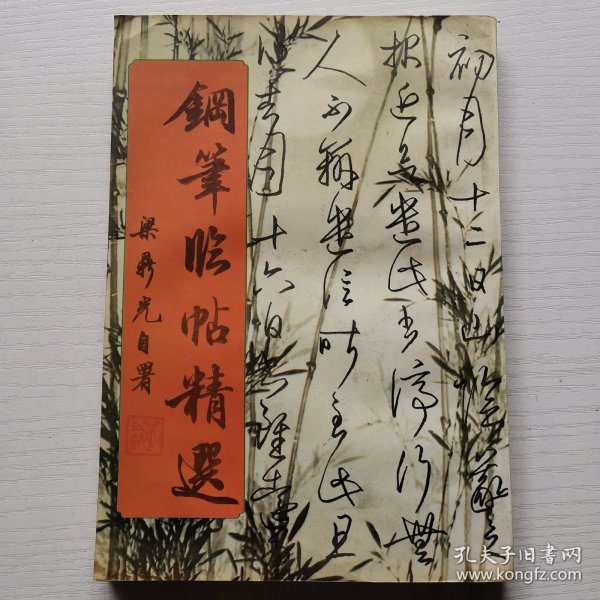 初月十二日山陰羲之
報近欲遣此書停行無
人不辦遣信昨至此且
得去月十六日書雖遠
鋼筆临帖精選
梁鼎光自署
孔夫子旧书网
www.kongfz.com